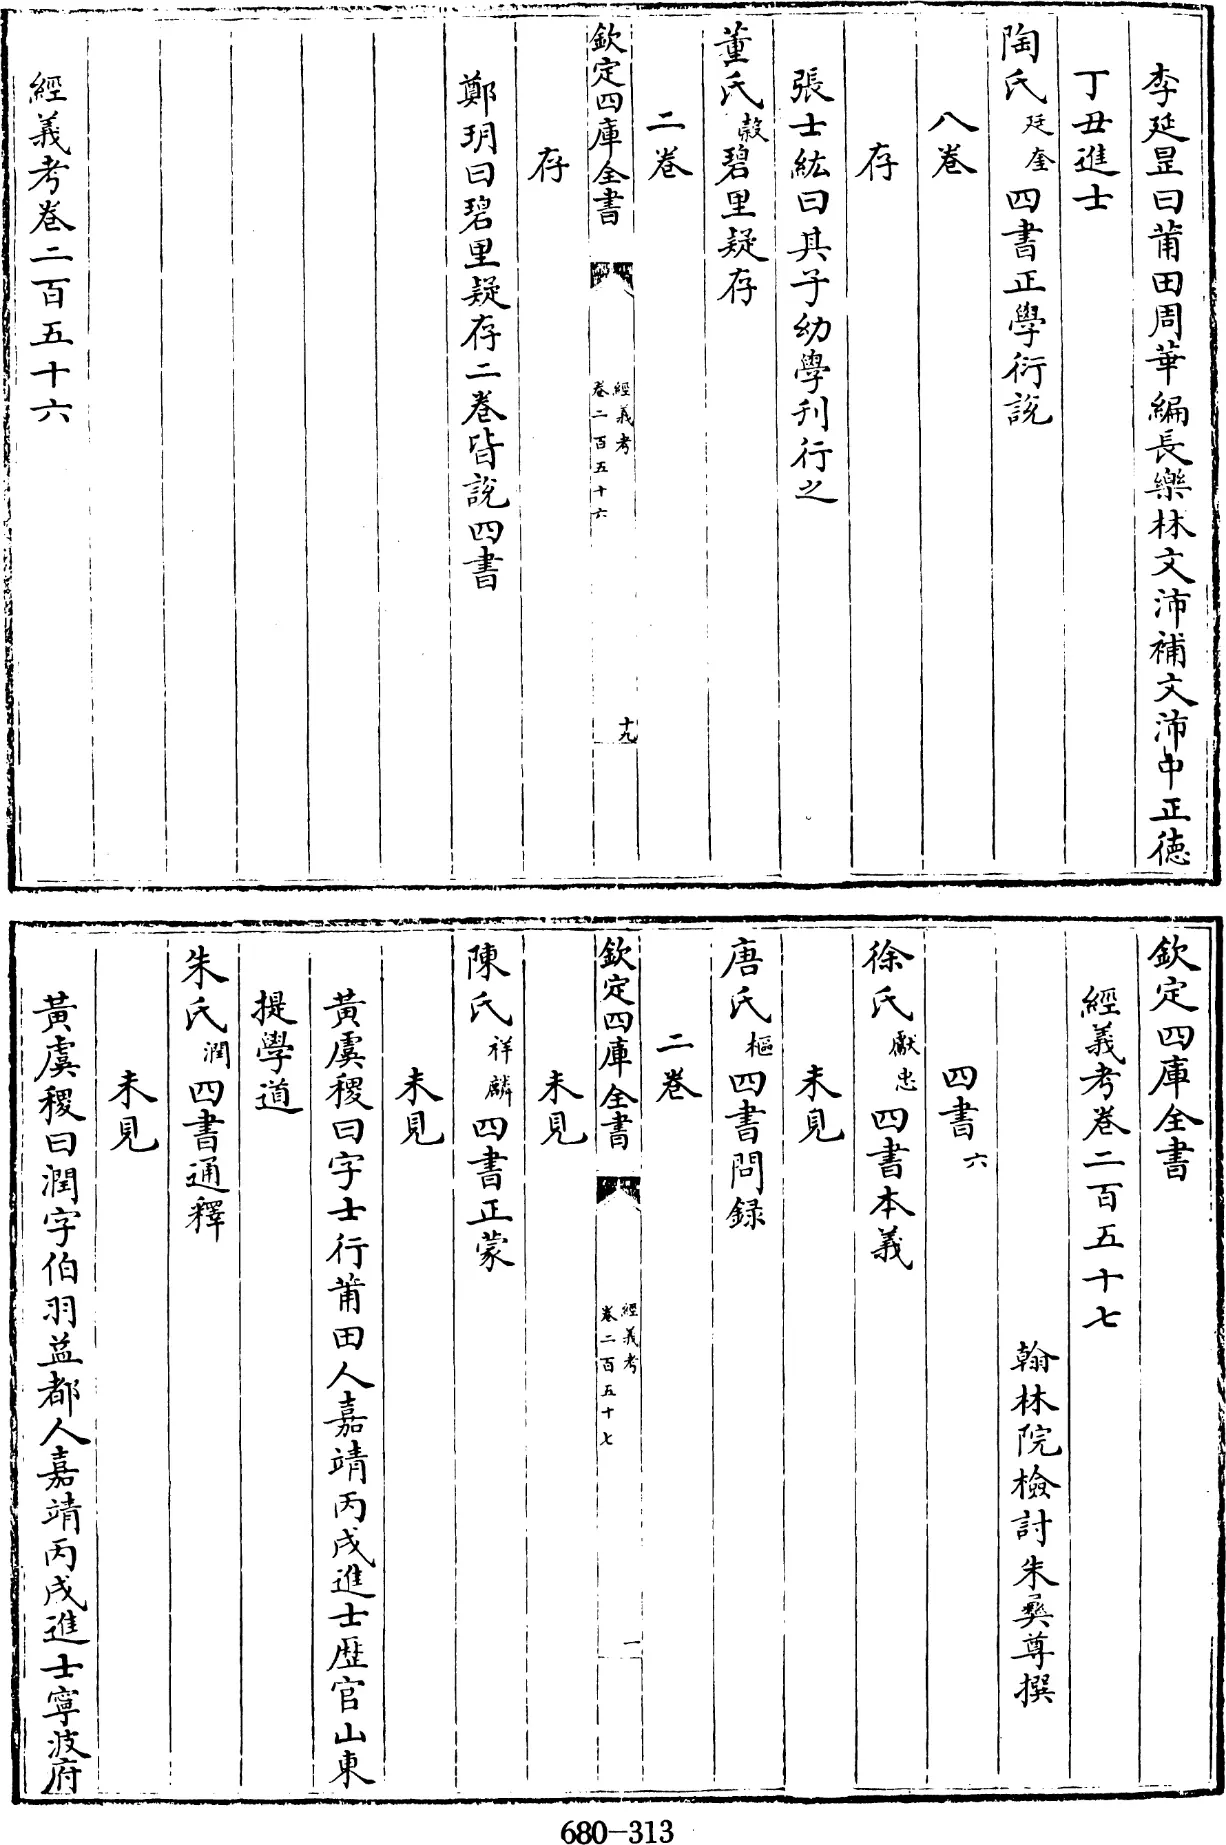 李延昰曰莆田周華編長樂林文沛補文沛中正徳
丁丑進士
陶氏廷奎四書正學衍說
八卷
存
張士紘曰其子幼學刋行之
董氏穀碧里疑存
二卷
欽定四庫全書
經義考
卷二百五十六
十九
存
鄭玥曰碧里疑存二卷皆說四書
經義考卷二百五十六
欽定四庫全書
經義考卷二百五十七
翰林院檢討朱彞尊撰
四書六
徐氏獻忠四書本義
未見
唐氏樞四書問録
二卷
欽定四庫全書
經義考
卷二百五十七
一
未見
陳氏祥麟四書正蒙
未見
黃虞稷曰字士行莆田人嘉靖丙戌進士歴官山東
提學道
朱氏潤四書通釋
未見
黃虞稷曰潤字伯羽益都人嘉靖丙戌進士寧波府
680-313